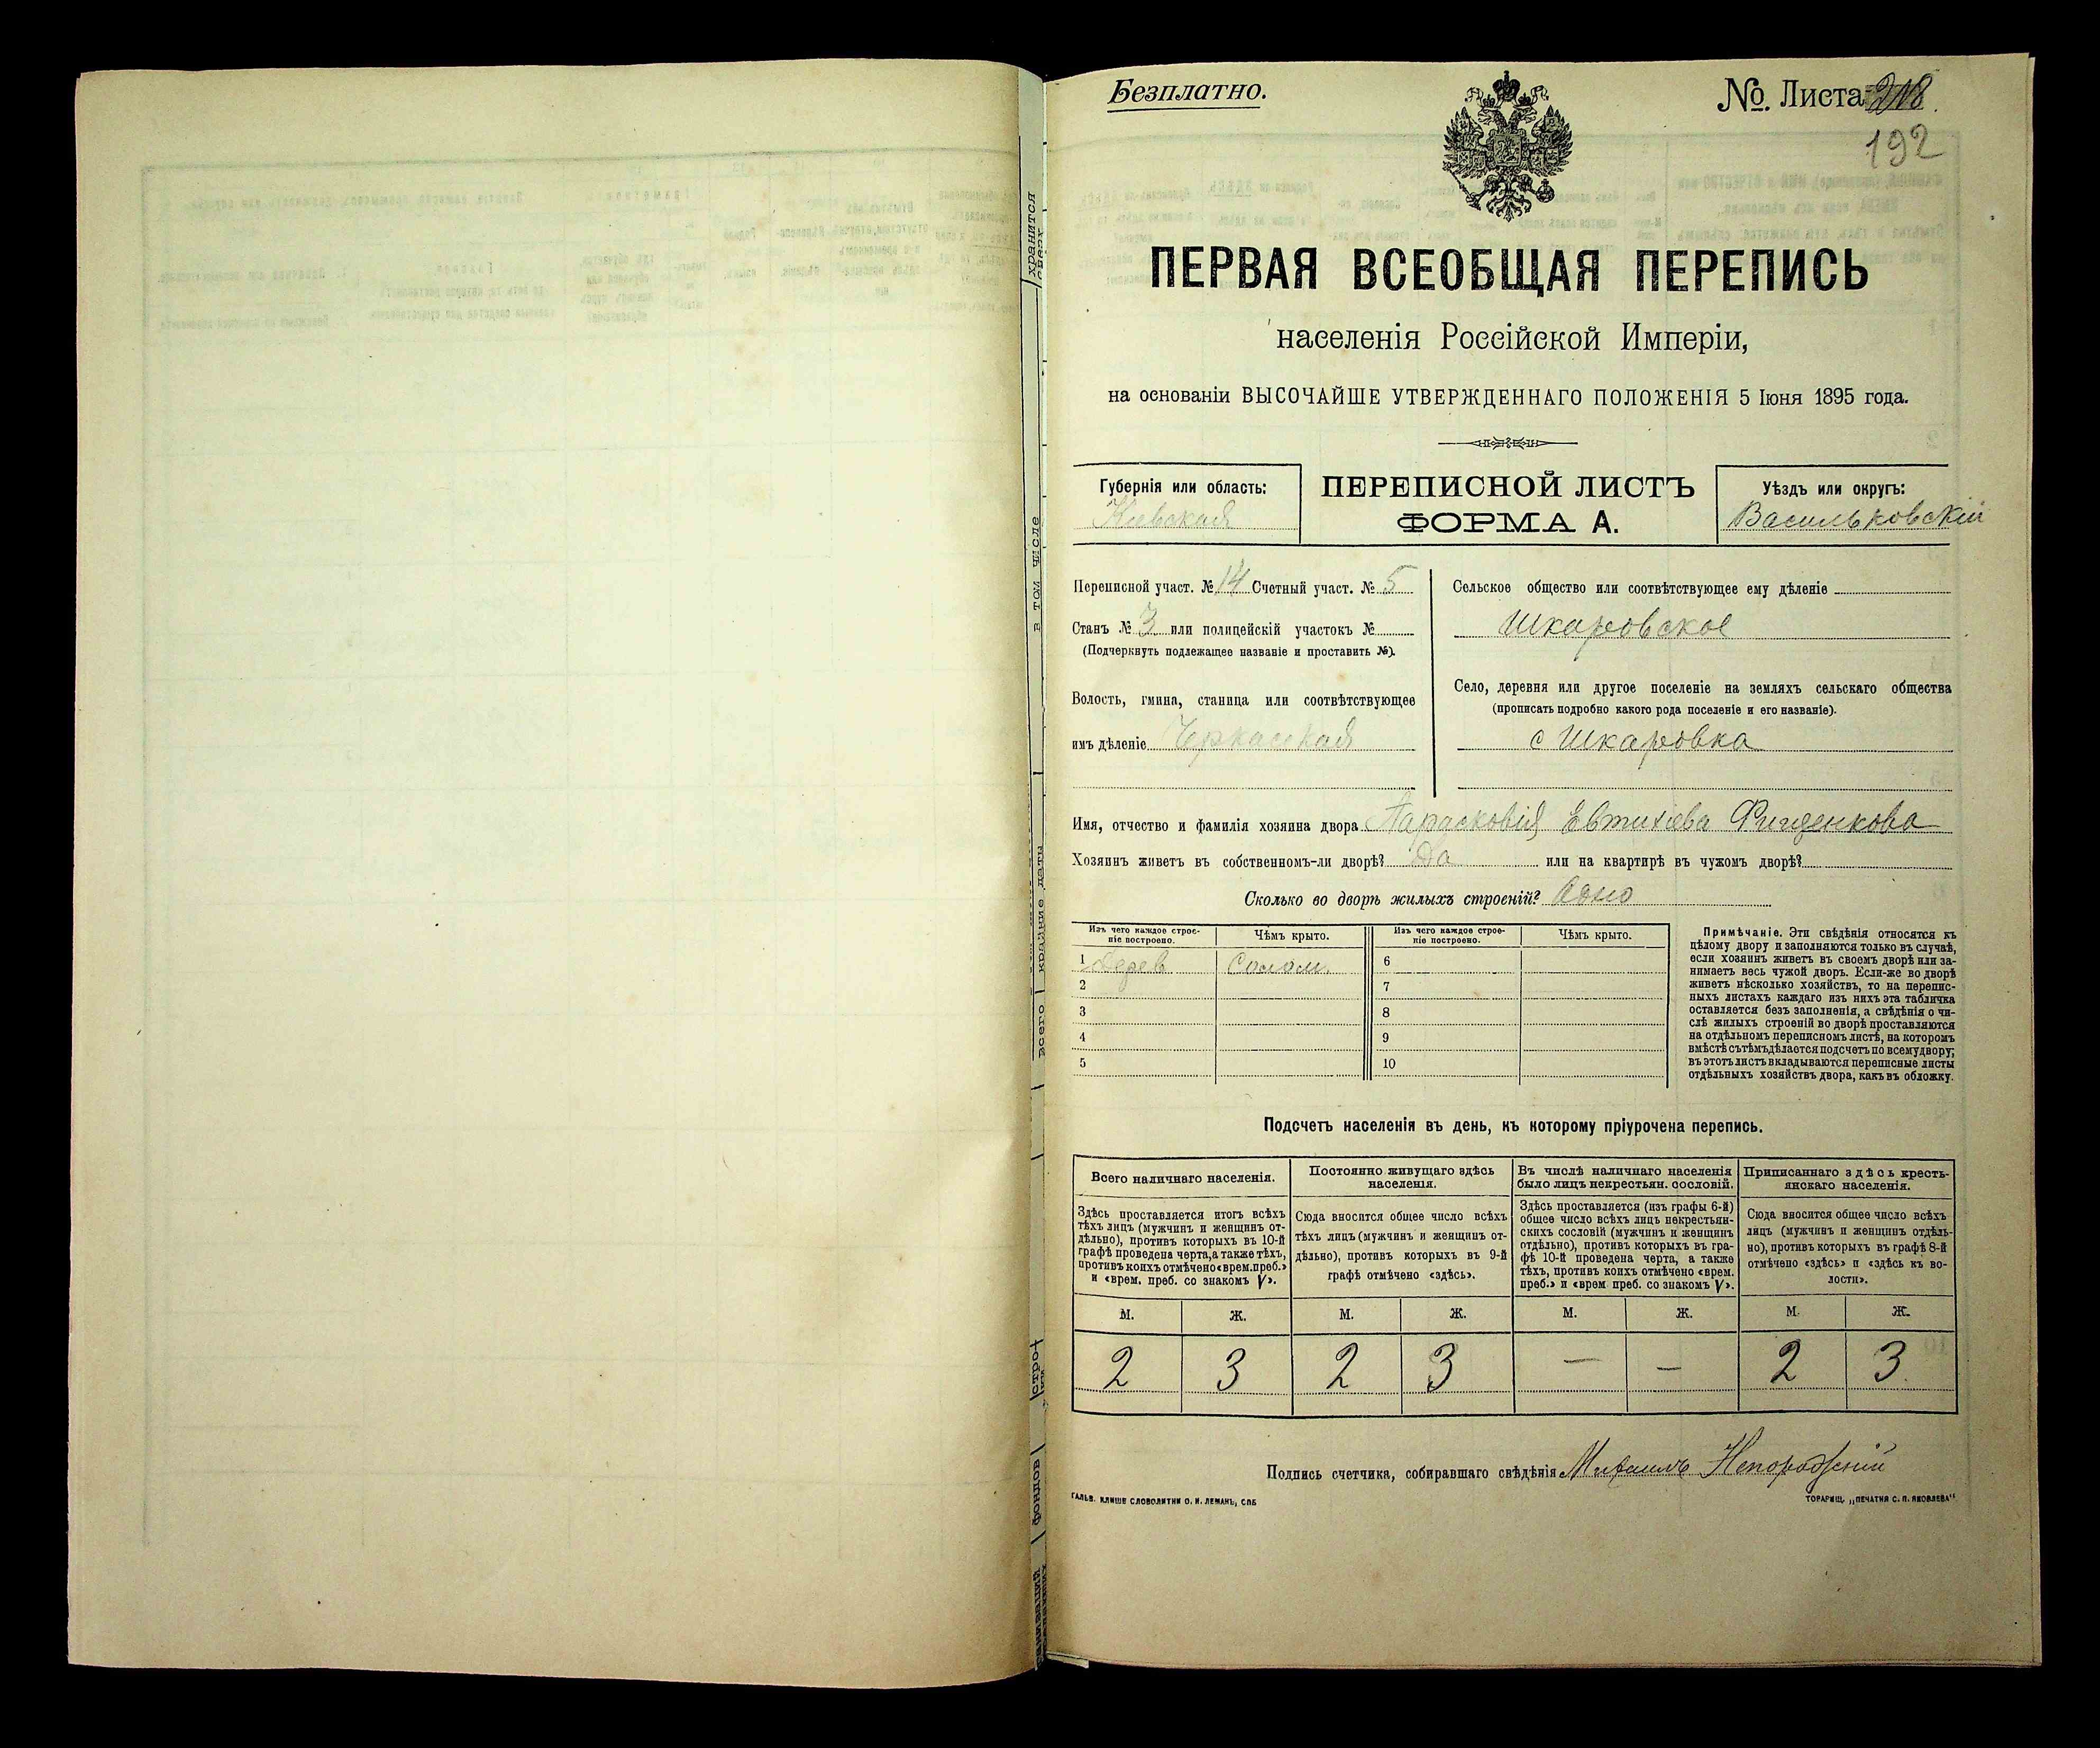 Безплатно.
№. Листа 218.
192
ПЕРВАЯ ВСЕОБЩАЯ ПЕРЕПИСЬ
населенія Россійской Имперіи,
на основаніи ВЫСОЧАЙШЕ УТВЕРЖДЕННАГО ПОЛОЖЕНІЯ 5 Іюня 1895 года.
Губернія или область:
Киевская
ПЕРЕПИСНОЙ ЛИСТЪ
ФОРМА А.
Уѣздъ или округъ:
Васильковскій
Переписной участ. № 14 Счетный участ. № 5
Станъ № 3 или полицейскій участокъ №
(Подчеркнуть подлежащее названіе и проставить №).
Волость, гмина, станица или соотвѣтствующее
имъ дѣленіе Черкасская
Сельское общество или соотвѣтствующее ему дѣленіе
Шкаровское
Село, деревня или другое поселеніе на земляхъ сельскаго общества
(прописать подробно какого рода поселеніе и его названіе).
с Шкаровка
Имя, отчество и фамилія хозяина двора Парасковія Евтихіева
Хозяинъ живетъ въ собственномъ-ли дворѣ? Да или на квартирѣ въ чужомъ дворѣ?
Сколько во дворѣ жилыхъ строеній? Одно
Изъ чего каждое строе-
ніе построено.
Чѣмъ крыто.
Изъ чего каждое строе-
ніе построено.
Чѣмъ крыто.
1 Дерев Солом. 6
2 7
3 8
4 9
5 10
Примѣчаніе. Эти свѣдѣнія относятся къ
цѣлому двору и заполняются только въ случаѣ,
если хозяинъ живетъ въ своемъ дворѣ или за-
нимаетъ весь чужой дворъ. Если-же во дворѣ
живетъ нѣсколько хозяйствъ, то на перепис-
ныхъ листахъ каждаго изъ нихъ эта табличка
оставляется безъ заполненія, а свѣдѣнія о чи-
слѣ жилыхъ строеній во дворѣ проставляются
на отдѣльномъ переписномъ листѣ, на которомъ
вмѣстѣ съ тѣмъ дѣлается подсчетъ по всему двору;
въ этотъ листъ вкладываются переписные листы
отдѣльныхъ хозяйствъ двора, какъ въ обложку.
Подсчетъ населенія въ день, къ которому пріурочена перепись.
Всего наличнаго населенія.
Здѣсь проставляется итогъ всѣхъ
тѣхъ лицъ (мужчинъ и женщинъ от-
дѣльно), противъ которыхъ въ 10-й
графѣ проведена черта, а также тѣхъ,
противъ коихъ отмѣчено «врем. преб.»
и «врем. преб. со знакомъ V».
Постоянно живущаго здѣсь
населенія.
Сюда вносится общее число всѣхъ
тѣхъ лицъ (мужчинъ и женщинъ от-
дѣльно), противъ которыхъ въ 9-й
графѣ отмѣчено «здѣсь».
Въ числѣ наличнаго населенія
было лицъ некрестьян. сословій.
Здѣсь проставляется (изъ графы 6-й)
общее число всѣхъ лицъ некрестьян-
скихъ сословій (мужчинъ и женщинъ
отдѣльно), противъ которыхъ въ гра-
фѣ 10-й проведена черта, а также
тѣхъ, противъ коихъ отмѣчено «врем.
преб.» и «врем преб. со знакомъ V».
Приписаннаго здѣсь кресть-
янскаго населенія.
Сюда вносится общее число всѣхъ
лицъ (мужчинъ и женщинъ отдѣль-
но), противъ которыхъ въ графѣ 8-й
отмѣчено «здѣсь» и «здѣсь къ во-
лости».
М. Ж. М. Ж. М. Ж. М. Ж.
2 3 2 3 — — 2 3
Подпись счетчика, собиравшаго свѣдѣнія Михаилъ
ГАЛЬВ. КЛИШЕ СЛОВОЛИТНИ О. И. ЛЕМАНЪ, СПБ
ТОРАРИЩ. „ПЕЧАТНЯ С. П. ЯКОВЛЕВА"